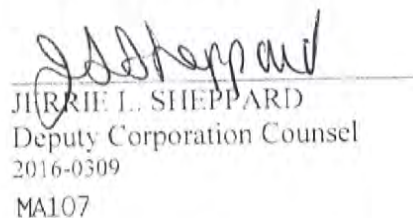 JLSheppard
JERRIE L. SHEPPARD
Deputy Corporation Counsel
2016-0309
MA107